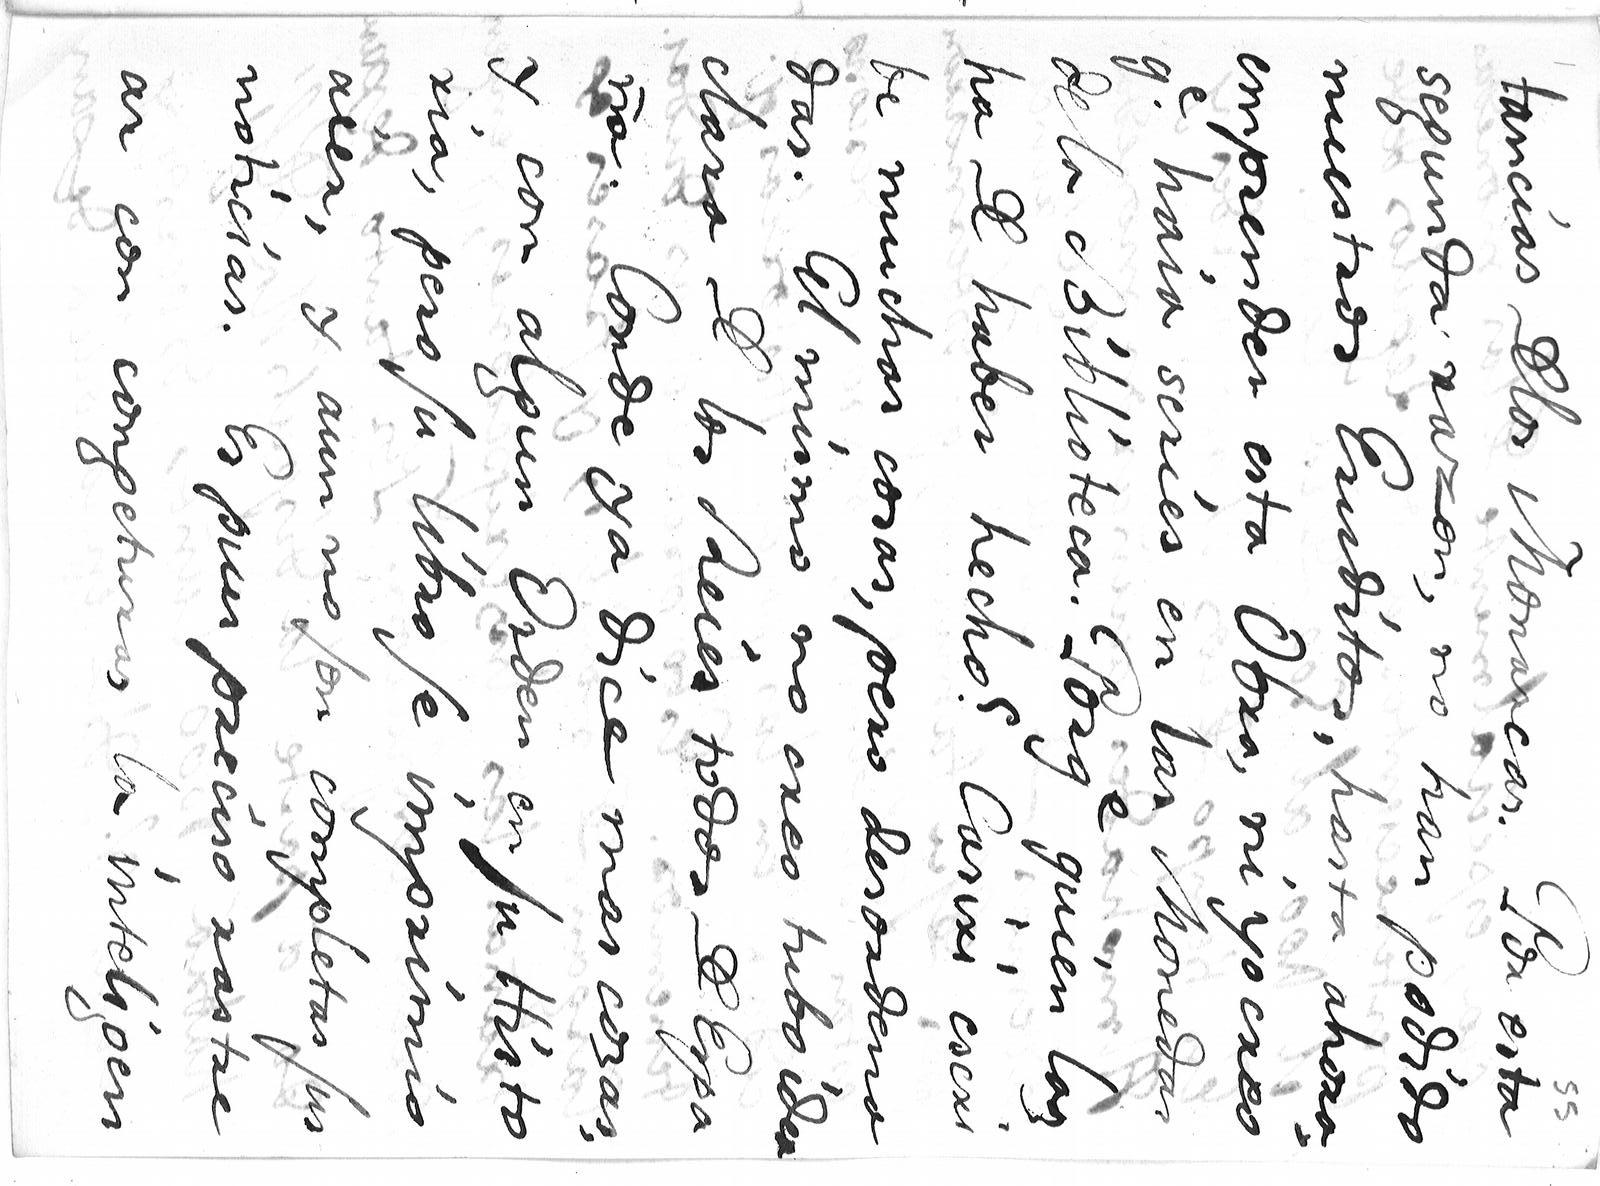 55
tancias Dlos Monarcas. Por esta
segunda razon, no han podido
nuestros Eruditos, hasta ahora
emprender esta Obra, ni yo creo
q.e haia series en las Monedas
dela Biblioteca. Porq.e quien las
ha D haber hecho? Casiri escri
be muchas cosas, pero desordena
das. El mismo no creo tubo idea
clara D los Reies todos D Espa
ña. Conde ya dice mas cosas,
y con algun Orden en su Histo
ria, pero su libro se imprimio
aier, y aun no son completas sus
noticias. Es pues preciso rastre
ar con congeturas la inteligen